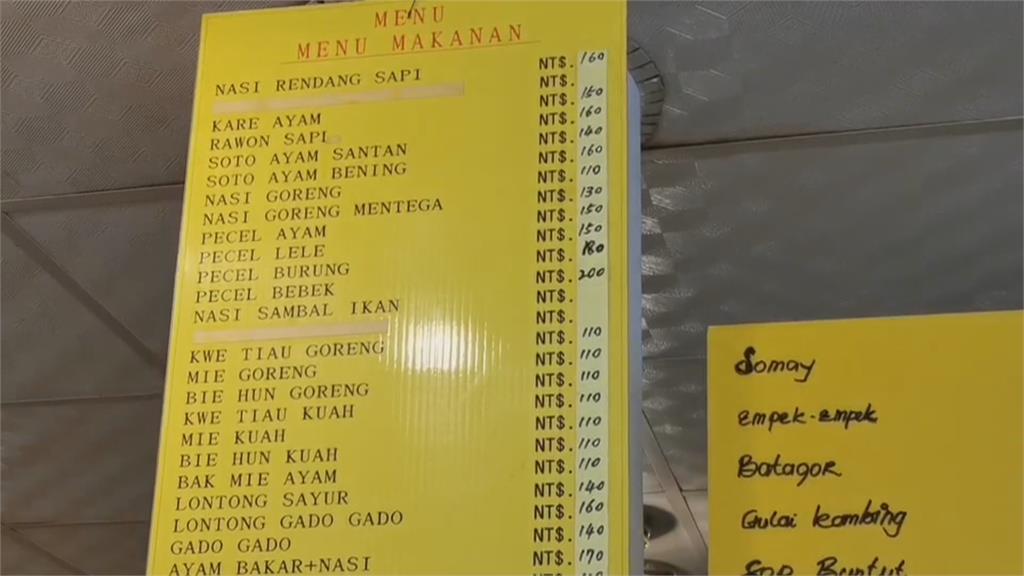 MENU
MENU MAKANAN
NASI RENDANG SAPI NT$. 160
NT$.
KARE AYAM NT$. 150
RAWON SAPI NT$. 160
SOTO AYAM SANTAN NT$. 140
SOTO AYAM BENING NT$. 160
NASI GORENG NT$. 110
NASI GORENG MENTEGA NT$. 130
PECEL AYAM NT$. 150
PECEL LELE NT$. 150
PECEL BURUNG NT$. 180
PECEL BEBEK NT$. 200
NASI SAMBAL IKAN NT$.
NT$.
KWE TIAU GORENG NT$. 110
MIE GORENG NT$. 110
BIE HUN GORENG NT$. 110
KWE TIAU KUAH NT$. 110
MIE KUAH NT$. 110
BIE HUN KUAH NT$. 110
BAK MIE AYAM NT$. 110
LONTONG SAYUR NT$. 140
LONTONG GADO GADO NT$. 160
GADO GADO NT$. 140
AYAM BAKAR+NASI NT$. 170
Somay
Empek-empek
Batagor
Gulai kambing
Sop Buntut